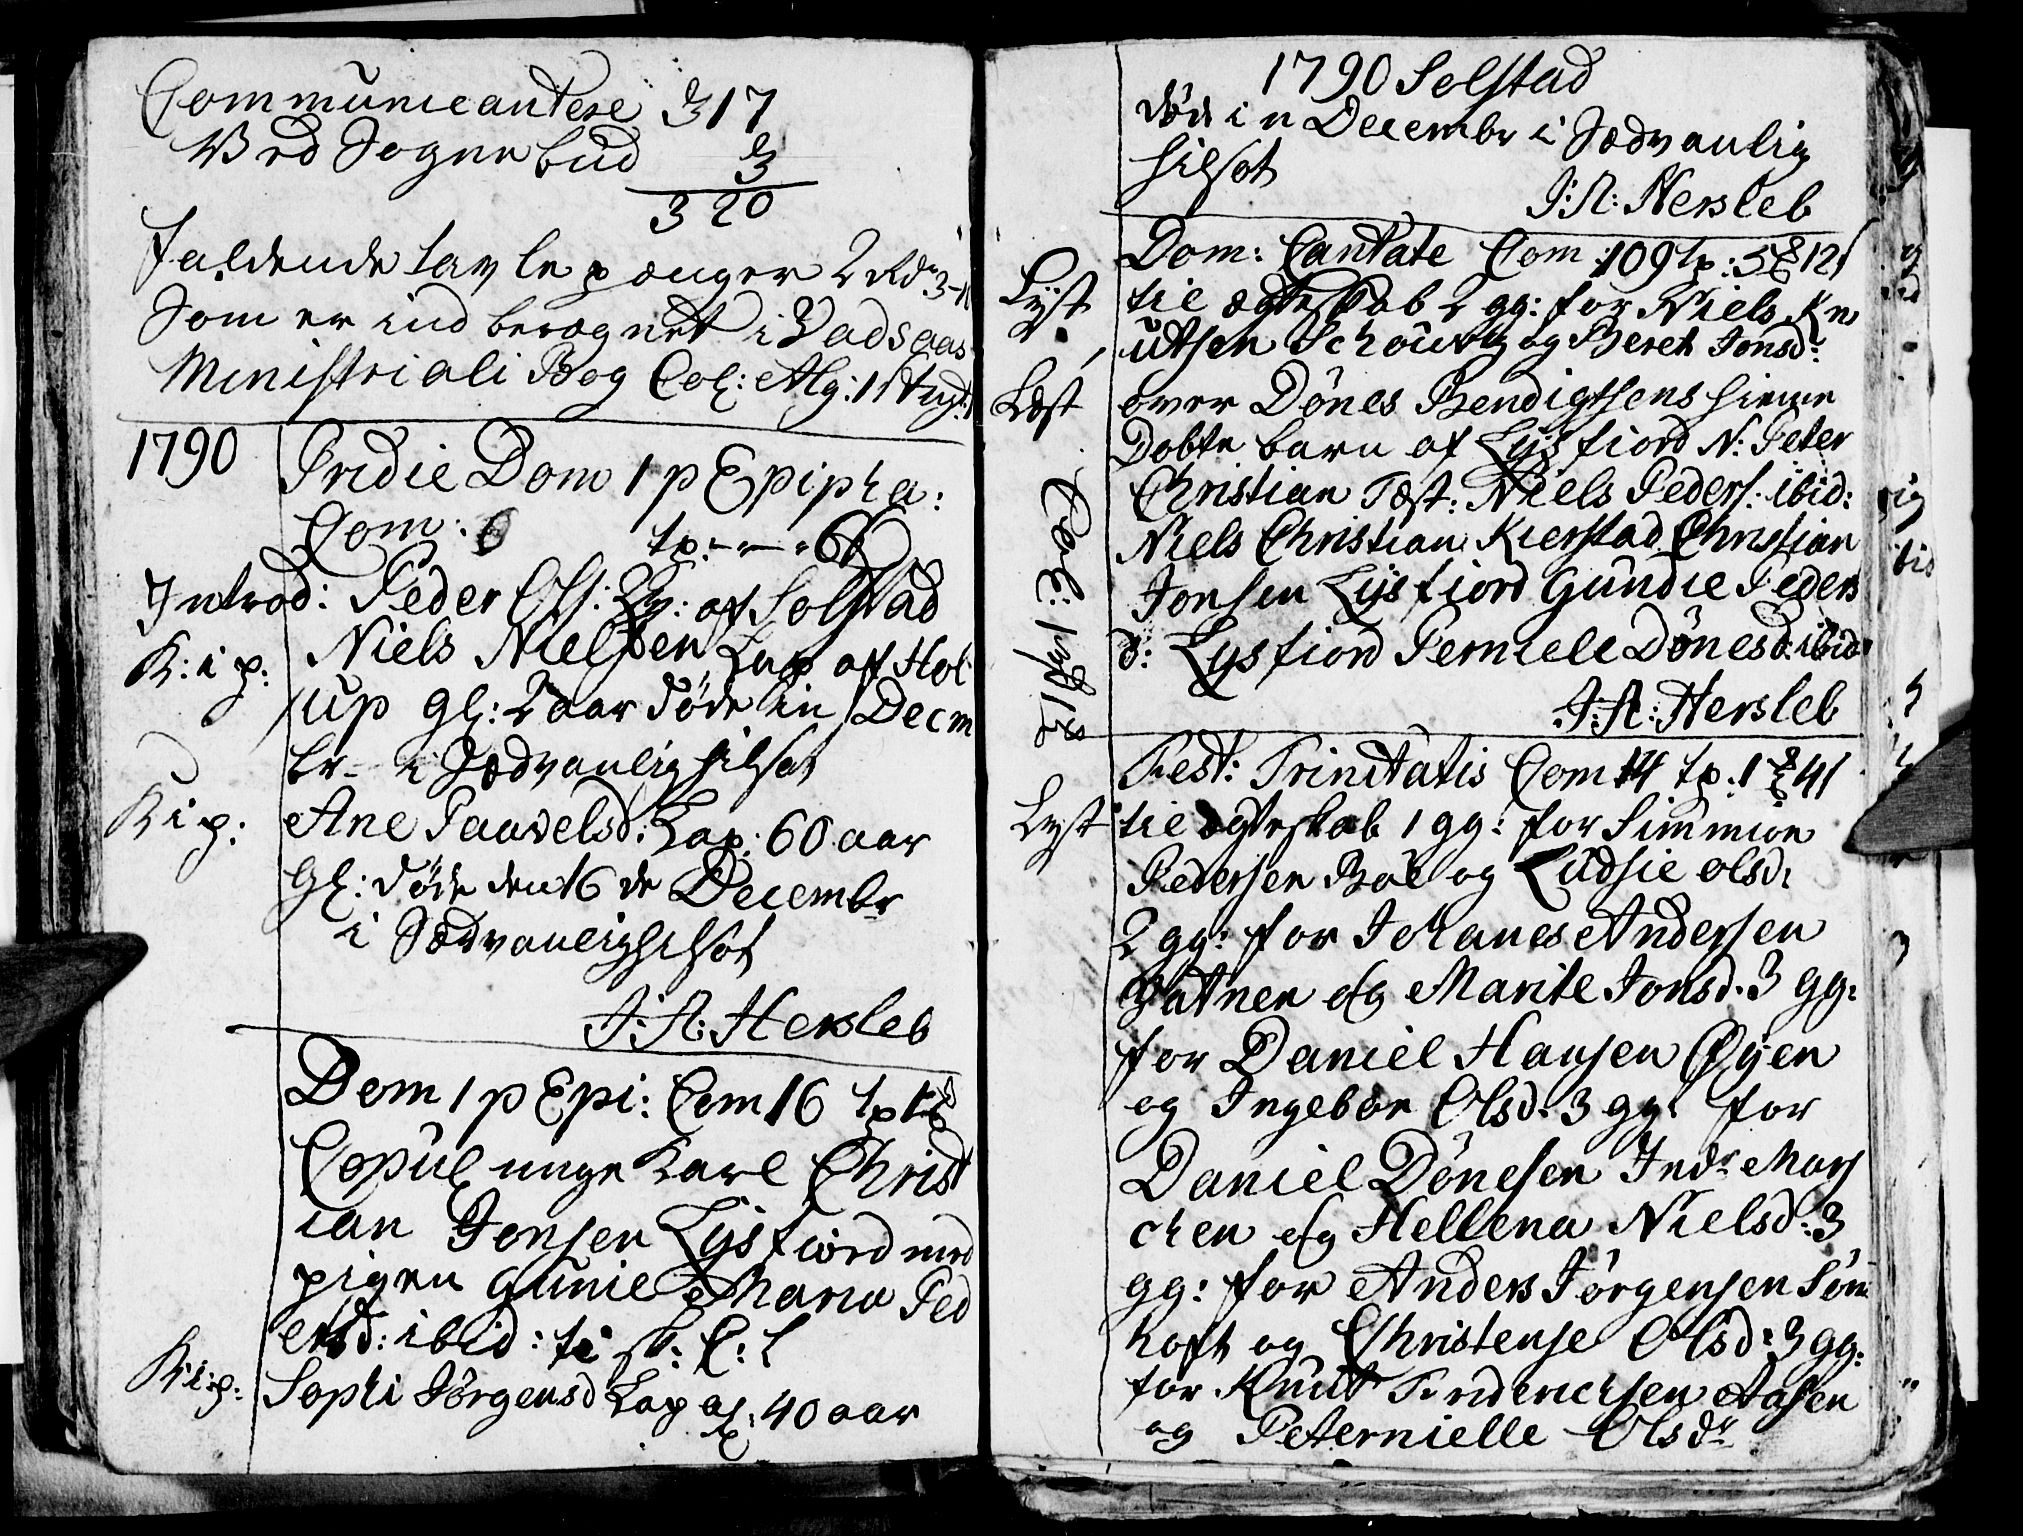 Communicantere 317
Ved Sognebud 3
320
faldende tavle penger 2 Rdr 3
Som er indberegnet i Vadsaas
Ministriali Bog Col: Alg: 
1790 Pridie Dom 1 p Epipha:
Com: 6 tp: - - - 6
Introd: Peder Ols: Ly: af Solstad
K: i p: Niels Nielsen Lap af Hol
up gl: 2 aar døde in Decm
br - i Sædvanlig hilsot
K i p: Ane Paavelsd: Lap: 60 aar
gl: døde den 16 de Decembr
i Sædvanlig hilsot
J: A: Hersleb
Dom 1 p Epi: Com 16 tp
Copul unge Karl Christ
ian Jonsen Lysfiord med
pigen Gunie Maria Ped
ersd: ibid:
K: i p: Sophi Jørgensd Lap gl: 40 aar
1790 Solstad
døde in Decembr i Sædvanlig
hilsot
J: A: Hersleb
Dom: Cantate Com: 109 tp: 5 12 s
Lyst til ægteskab 2 gg: for Niels Kn
utsen og Beret Jonsd:
Læst over Dønes Bendigtsens hieme
Døbte barn af Lysfiord N: Peter
Christian Test: Niels Peders: ibid:
Niels Christian Kierstad Christian
Jonsen Lysfiord Gundie Peders
d: Lysfiord Perniele Dønesd: ibid:
J: A: Hersleb
Fest: Trinitatis Com 14 tp: 1 41
Lyst til ægteskab 1 gg: for Simmion
Pedersen Bøe og Ludsie Olsd:
2 gg: for Johanes Andersen
Vatnen og Marite Jonsd: 3 gg:
for Daniel Hansen Øyen
og Ingebor Olsd: 3 gg: for
Daniel Dønesen Indr Mars
chen og Hellena Nielsd: 3
gg: for Anders Jørgensen Søm
hoft og Christense Olsd: 3 gg:
for Knut Friderichsen Aasen
og Peternielle Olsdr